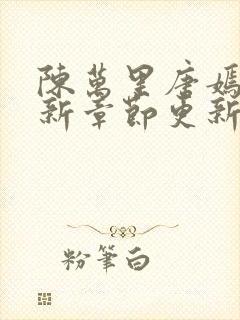 陳萬里唐嫣
新章節更新
粉筆白